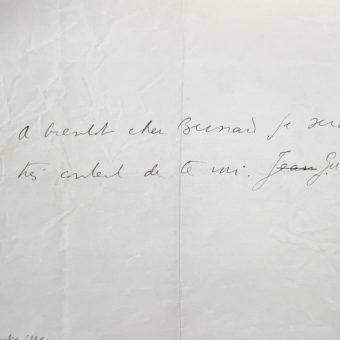 A bientot cher Bernard je sera
très content de te voir. Jean